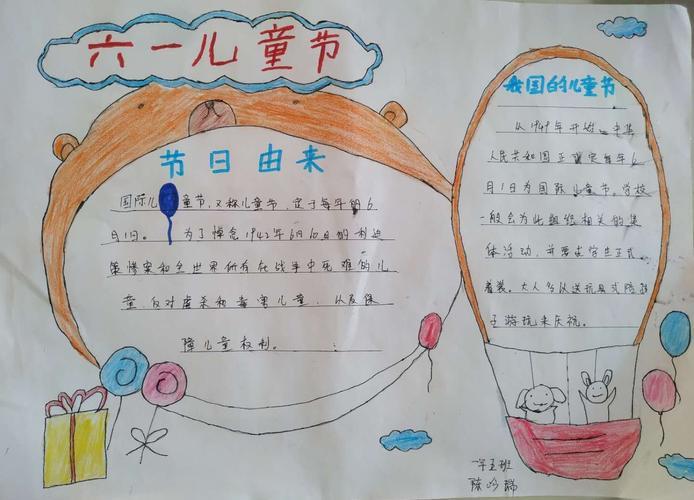 六一儿童节
节日由来
国际儿童节,又称儿童节,定于每年的6
月1日。为了悼念1942年6月10日的利迪
策惨案和全世界所有在战争中死难的儿
童,反对虐杀和毒害儿童,以及保
障儿童权利。
我国的儿童节
从1949年开始,中华
人民共和国正式规定每年6
月1日为国际儿童节。学校
一般会为此组织相关的集
体活动,并要求学生正式
着装。大人会以送玩具或陪孩
子游玩来庆祝。
一年五班
陈